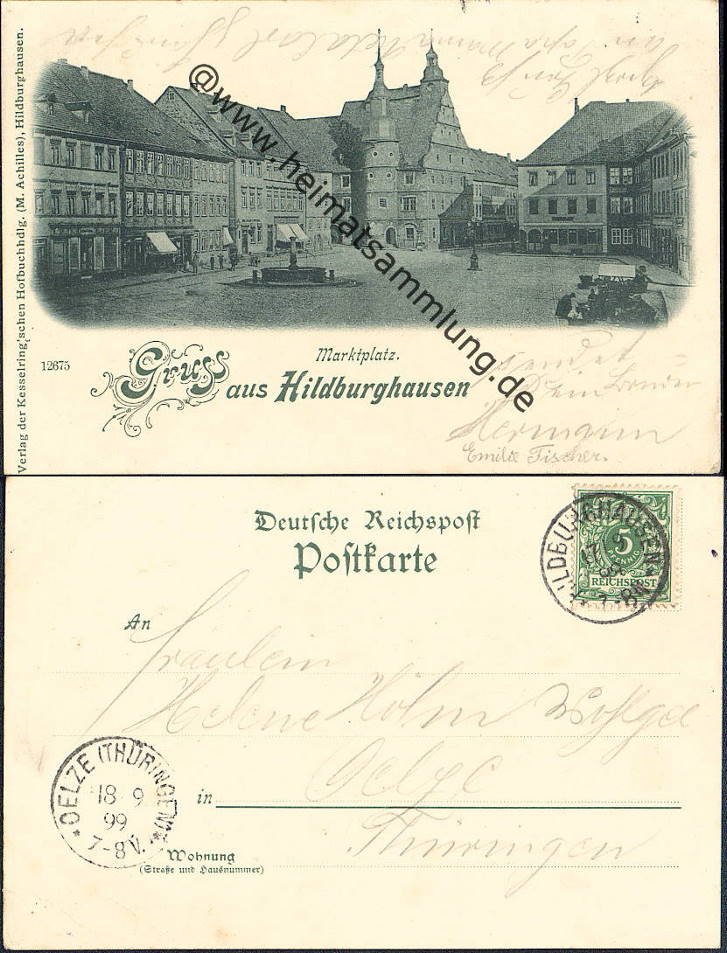 Verlag der Kesselring'schen Hofbuchhdlg. (M. Achilles), Hildburghausen.
@www.heimatsammlung.de
12675
Marktplatz.
Gruss aus Hildburghausen
sendet
Dein Bruder
Hermann
Emilie Fischer.
Deutsche Reichspost
Postkarte
HILDBURGHAUSEN
5
PFENNIG
REICHSPOST
An
Fräulein
Helene Höhn
Oelze
in
Thüringen
OELZE (THÜRINGEN)
18 9
99
7-8V.
Wohnung
(Straße und Hausnummer)